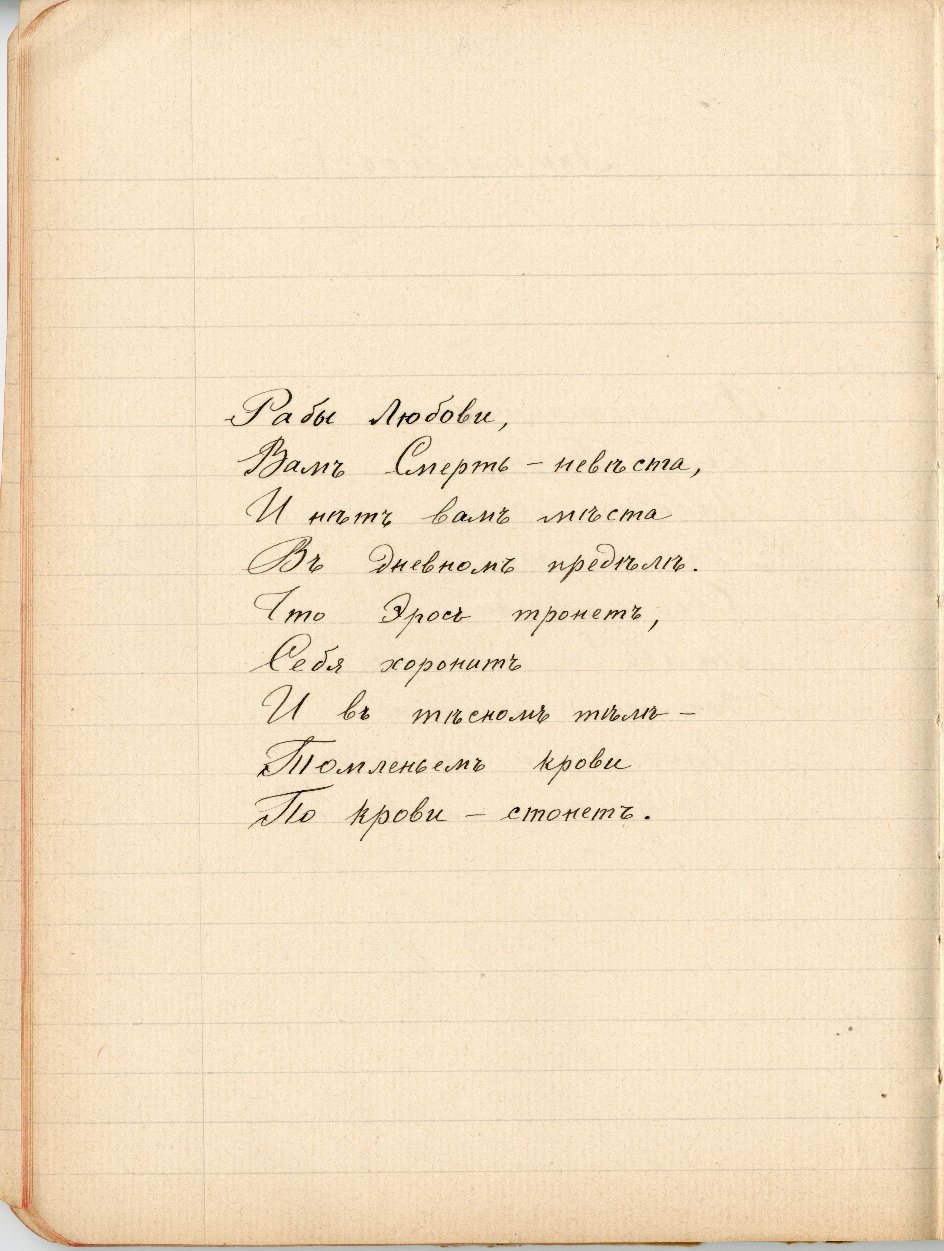 Рабы Любови,
Вамъ Смерть – невѣста,
И нѣтъ вамъ мѣста
Въ дневномъ предѣлѣ.
Что Эросъ тронетъ,
Себя хоронитъ
И въ тѣсномъ тѣлѣ –
Томленьемъ крови
По крови – стонетъ.